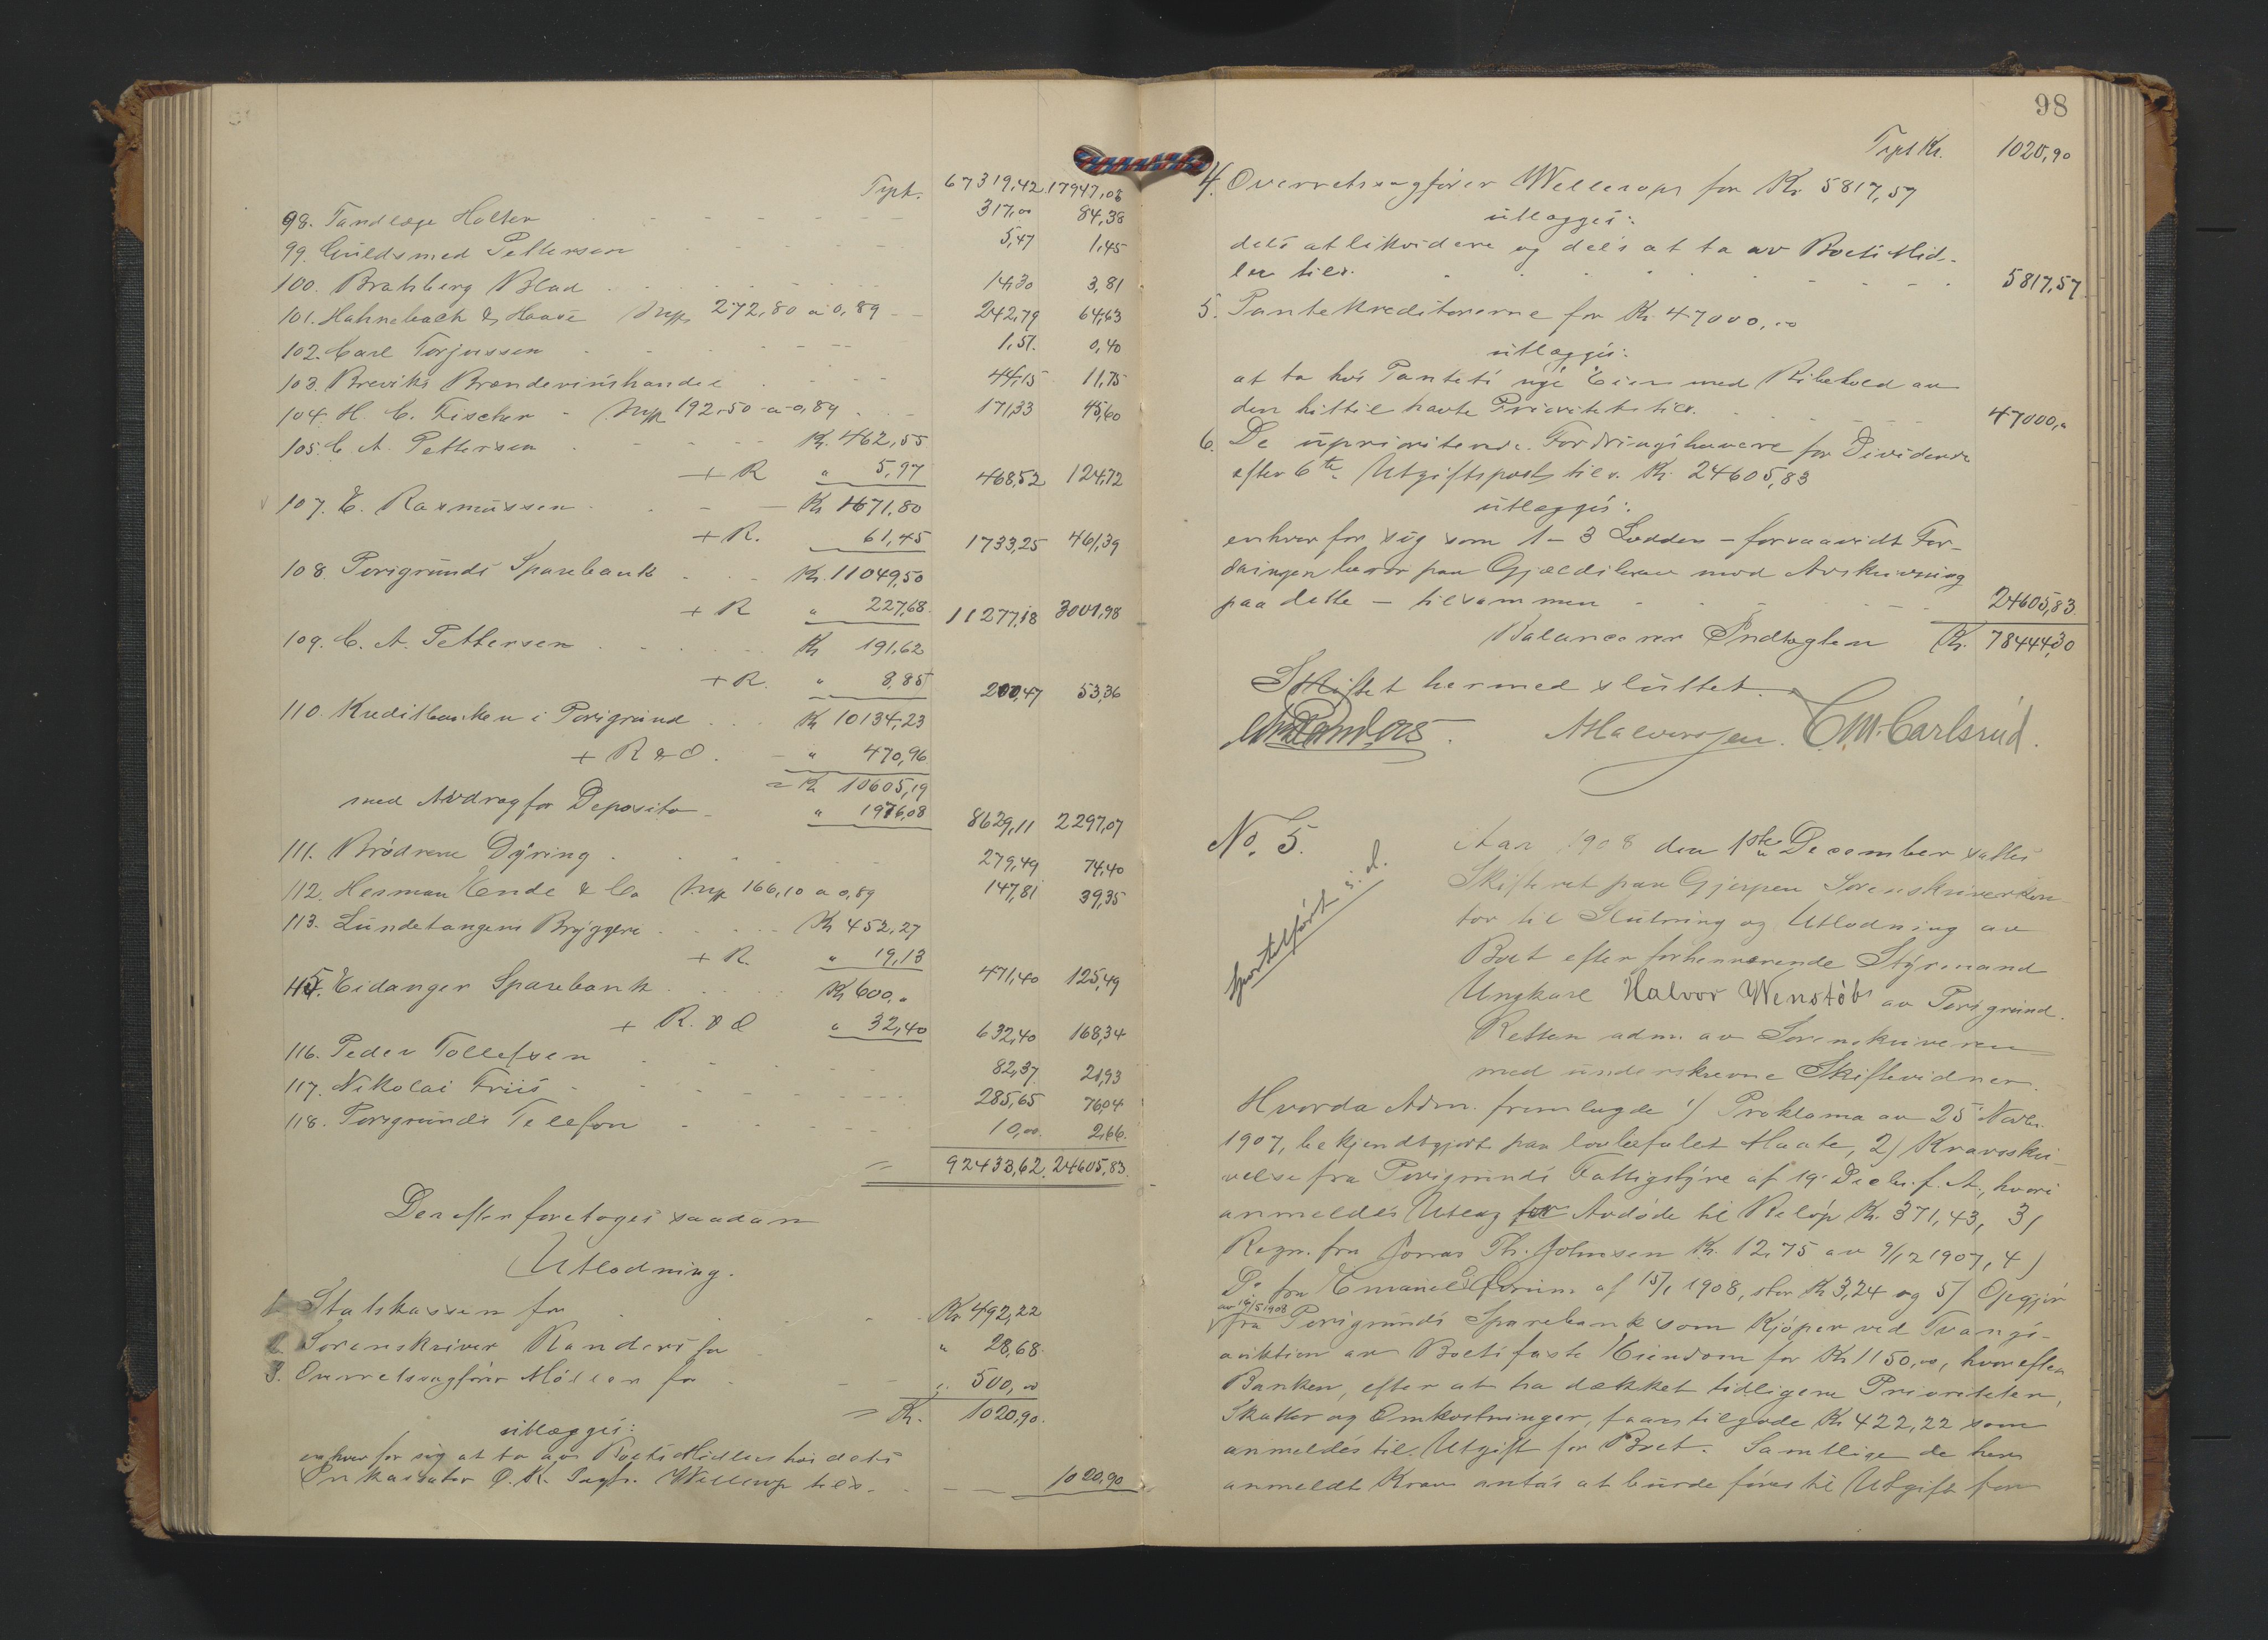 Trpt. 67319,42 17947,08
98. Tandlæge Holter 317,00 84,38
99. Guldsmed Pettersen 5,47 1,45
100. Bratsberg Blad 14,30 3,81
101. Hahnebach & Haave 272,80 a 0,89 242,79 64,63
102. Carl Torjussen 1,51 0,40
103. Breviks Brændevinshandel 44,15 11,75
104. H. C. Fischer 192,50 a 0,89 171,33 45,60
105. C. A. Pettersen Kr. 462,55
+ R " 5,97 468,52 124,72
107. E. Rasmussen Kr 1671,80
+ R. 61,45 1733,25 461,39
108. Porsgrunds Sparebank Kr. 11049,50
+ R " 227,68 11277,18 3001,98
109. C. A. Pettersen Kr 191,62
+ R. " 8,85 200,47 53,36
110. Kreditbanken i Porsgrund Kr 10134,23
+ R & O. " 470,96
= Kr 10605,19
med Avdrag for Deposito " 1976,08 8629,11 2297,07
111. Brødrene Dyring 279,49 74,40
112. Herman Ende & Co 166,10 a 0,89 147,81 39,35
113. Lundetangens Bryggeri Kr 452,27
+ R. " 19,13 471,40 125,49
115. Eidanger Sparebank Kr 600,"
+ R. & O " 32,40 632,40 168,34
116. Peder Tollefsen 82,37 21,93
117. Nikolai Friis 285,65 76,04
118. Porsgrunds Telefon 10,00 2,66
= 92433,62 24605,83
Derefter foretoges saadan
Utlodning.
1. Statskassen for Kr 492,22
2. Sorenskriver Randers for " 28,68
3. Overretssagfører Møller for " 500,00
= Kr. 1020,90
utlægges:
enhver for sig at ta av Boets Midler hos dets
Inkassator O. R. Sagf. Wellerop tils. 1020,90
98
Trpt Kr. 1020,90
4. Overretssagfører Wellerops for Kr 5817,57
utlægges:
dels at likvidere og dels at ta av Boets Mid-
ler tils. 5817,57
5. Pantekreditorerne for Kr. 47000,00
utlægges:
at ta hos Pantets nye Eier med Bibehold av
den hittil havte Prioritet tils. 47000,"
6. De uprioriterede Fordringshavere for Dividende
efter 6te Utgiftspost tils. Kr. 24605,83
utlægges:
enhver for sig som 1-3 Lodden - forsaavidt For-
dringen beror paa Gjældsbrev mod Avskrivning
paa dette - tilsammen 24605,83
Balancerer Indtægten Kr. 78444,30
Skiftet hermed sluttet.
Randers. AHalvorsen. C.M. Carlsrud.
No. 5.
Aar 1908 den 1ste December sattes
Skifteret paa Gjerpen Sorenskriverkon-
tor til Slutning og Utlodning av
Boet efter forhenværende Styrmand
Ungkarl Halvor Wenstøb av Porsgrund.
Retten adm. av Sorenskriveren
med underskrevne Skiftevidner.
Hvorda Adm. fremlagde 1) Proklama av 25 Novbr.
1907, bekjendtgjort paa lovbefalet Maate, 2) Kravsskri-
velse fra Porsgrunds Fattigstyre af 19 Decbr. f. A., hvori
anmeldes Utlæg for Avdøde til Beløp Kr. 371,43, 3)
Regn. fra Jonas Th. Johnsen Kr. 12,75 av 9/12 1907, 4)
Do fra Emanuel af 15/1 1908, stor Kr 3,24 og 5) Opgjør
av 19/5 1908
fra Porsgrunds Sparebank som Kjøper ved Tvangs-
auktion av Boets faste Eiendom for Kr 1150,00, hvorefter
Banken, efter at ha dækket tidligere Prioriteter,
Skatter og Omkostninger, faar tilgode Kr 422,22 som
anmeldes til Utgift for Boet. Samtlige de her
anmeldte Krav antas at burde føres til Utgift for